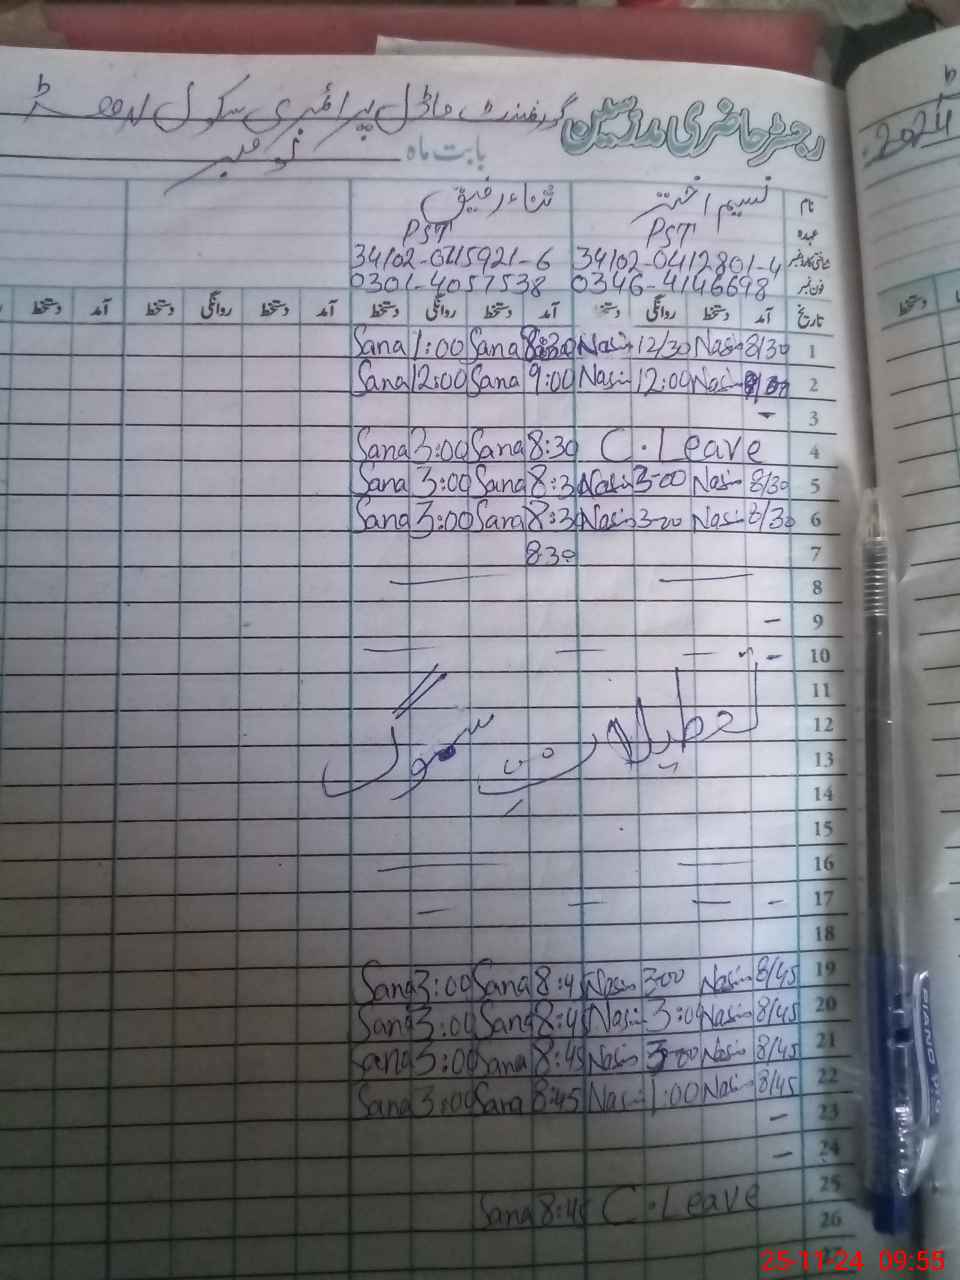 رجسٹر حاضری مدرسین گورنمنٹ ماڈل پرائمری سکول
بابت ماہ نومبر
2024
نام نسیم اختر ثناء رفیق
عہدہ PST PST
شناختی کارڈ نمبر 34102-0412801-4 34102-0415921-6
فون نمبر 0346-4146698 0301-4057538
تاریخ آمد دستخط روانگی دستخط آمد دستخط روانگی دستخط آمد دستخط روانگی دستخط آمد دستخط
1 8/30 Nasim 12/30 Nasim 8:30 Sana 1:00 Sana
2 Nasim 12:00 Nasim 9:00 Sana 12:00 Sana
3 -
4 C. Leave 8:30 Sana 3:00 Sana
5 8/30 Nasim 3-00 Nasim 8:30 Sana 3:00 Sana
6 8/30 Nasim 3-00 Nasim 8:30 Sana 3:00 Sana
7 8:30
8
9 -
10 -
11
12 تعطیلات سموگ
13
14
15
16
17 -
18
19 8/45 Nasim 3-00 Nasim 8:45 Sana 3:00 Sana
20 8/45 Nasim 3:00 Nasim 8:45 Sana 3:00 Sana
21 8/45 Nasim 3-00 Nasim 8:45 Sana 3:00 Sana
22 8/45 Nasim 1:00 Nasim 8:45 Sana 3:00 Sana
23 -
24 -
25 C. Leave 8:45 Sana
26
PIANO
25-11-24 09:55